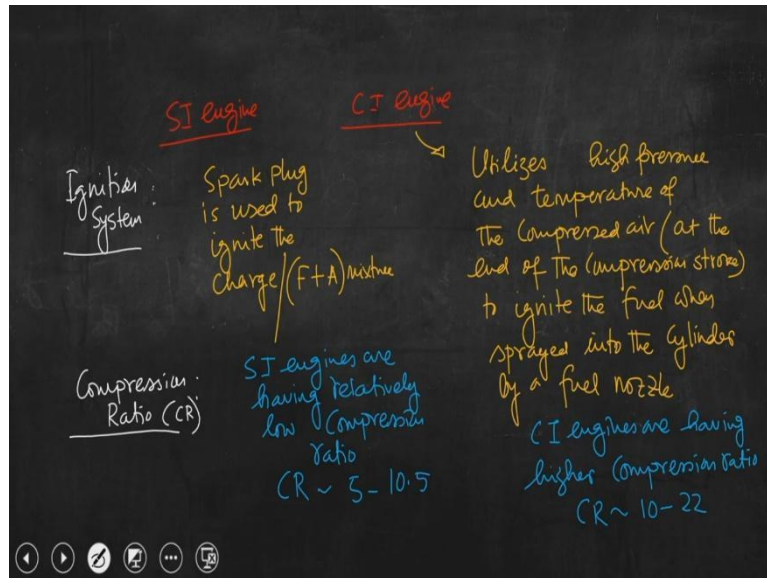 SI engine
CI engine
Ignition
System :
Spark Plug
is used to
ignite the
charge/(F+A) mixture
Utilizes high pressure
and temperature of
the compressed air (at the
end of the compression stroke)
to ignite the fuel when
sprayed into the cylinder
by a fuel nozzle
Compression :
Ratio (CR)
SI engines are
having relatively
low compression
ratio
CR ~ 5-10.5
CI engines are having
higher compression ratio
CR ~ 10-22